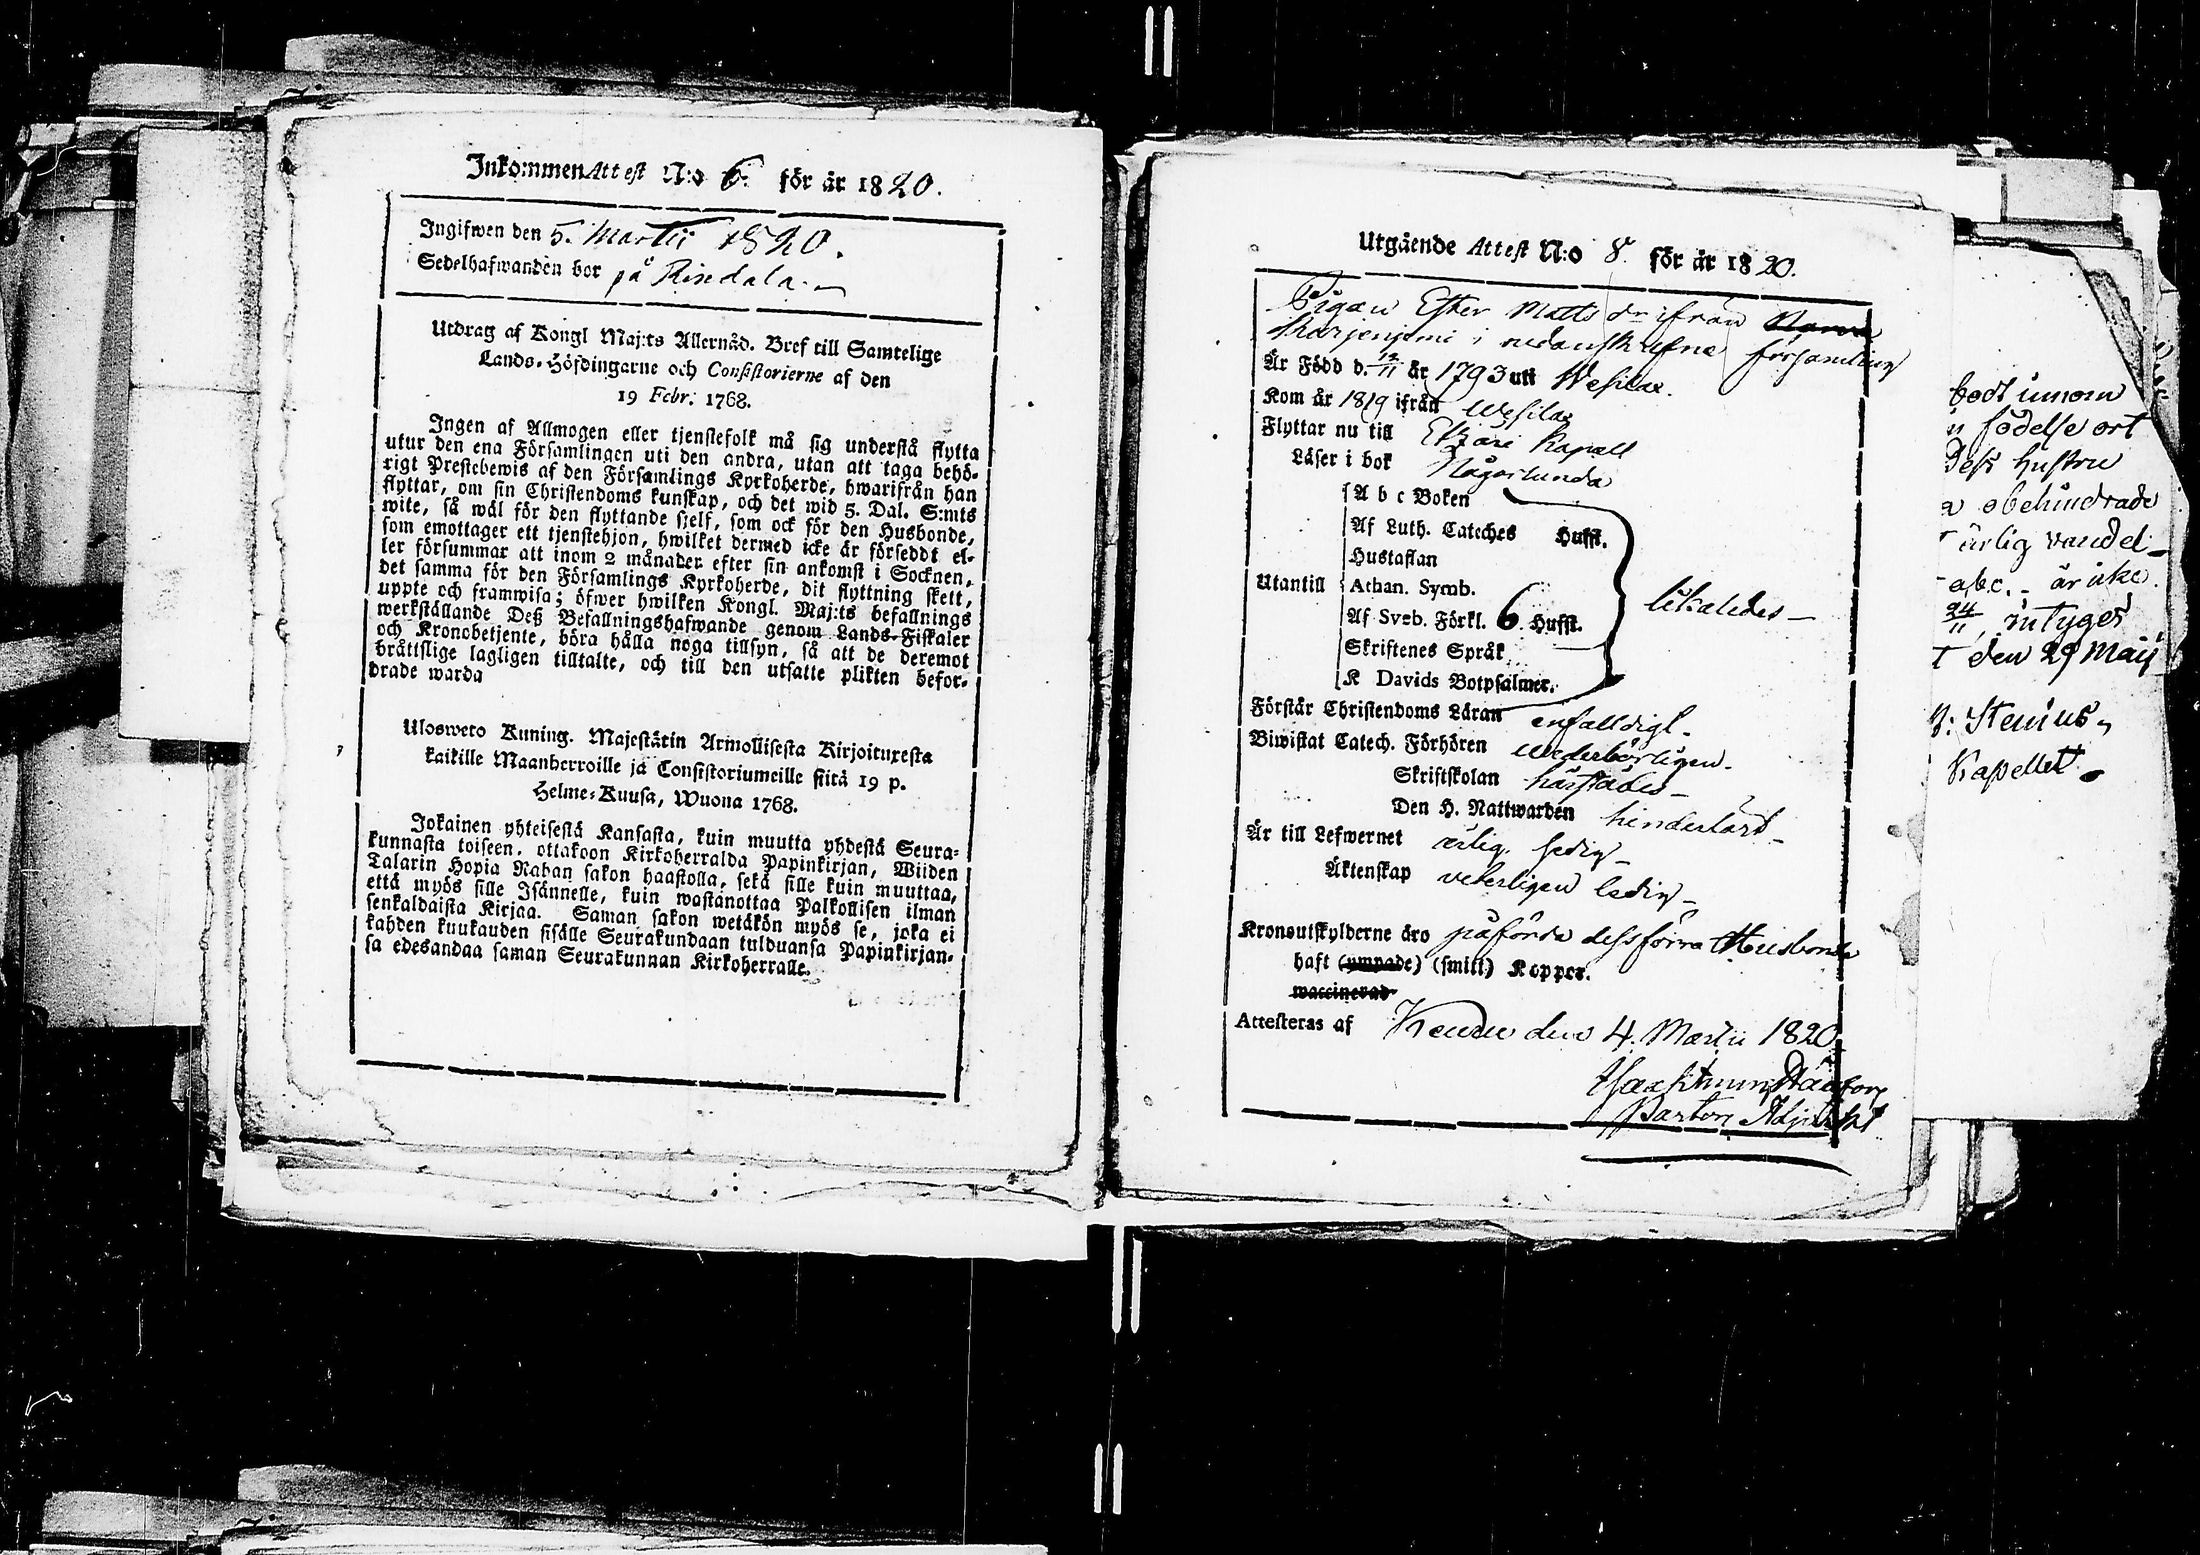 Inkommen Attest N:o 6. för år 1820.
Ingifwen den 5. Martii 1820.
Sedelhafwanden bor på Rindala.
Utdrag af Kongl Maj:ts Allernåd. Bref till Samtelige
Lands-Höfdingarne och Consistorierne af den
19 Febr. 1768.
Ingen af Allmogen eller tjenstefolk må sig understå flytta
utur den ena Församlingen uti den andra, utan att taga behö-
rigt Prestebewis af den Församlings Kyrkoherde, hwarifrån han
flyttar, om sin Christendoms kunskap, och det wid 5. Dal. S:mts
wite, så wäl för den flyttande sjelf, som ock för den Husbonde,
som emottager ett tjenstehjon, hwilket dermed icke är försedt el-
ler försummar att inom 2 månader efter sin ankomst i Socknen,
det samma för den Församlings Kyrkoherde, dit flyttning skett,
uppte och framwisa; öfwer hwilken Kongl. Maj:ts befallnings
werkställande Deß Befallningshafwande genom Lands-Fiskaler
och Kronobetjente, böra hålla noga tillsyn, så att de deremot
bråttslige lagligen tilltalte, och till den utsatte plikten befor-
drade warda
Ulosweto Kuning. Majestätin Armollisesta Kirjoituxesta
kaikille Maanherroille ja Consistoriumeille siitä 19 p.
Helme-Kuusa, Wuona 1768.
Jokainen yhteisestä Kansasta, kuin muutta yhdestä Seura-
kunnasta toiseen, ottakoon Kirkoherralda Papinkirjan, Wiiden
Talarin Hopia Rahan sakon haastolla, sekä sille kuin muuttaa,
että myös sille Isännelle, kuin wastanottaa Palkollisen ilman
senkaldaista Kirjaa. Saman sakon wetäkön myös se, joka ei
kahden kuukauden sisälle Seurakundaan tulduansa Papinkirjan-
sa edesandaa saman Seurakunnan Kirkoherralle.
Utgående Attest N:o 8. för år 1820.
Pigan Ester Matts dr ifrån
i nedanskrefne församling
Är Född d. 12/11 år 1793 uti Wesilax.
Kom år 1819 ifrån Wesilax
Flyttar nu till Etzäri Kapell
Läser i bok Någorlunda
A b c Boken
Af Luth. Cateches Hufst.
Hustaflan
Utantill Athan. Symb. likaledes
Af Sveb. Förkl. 6 Hufst.
Skriftenes Språk
K Davids Botpsalmer.
Förstår Christendoms Läran enfalldigt.
Biwistat Catech. Förhören wederbörligen.
Skriftskolan härstädes
Den H. Nattwarden
Är till Lefwernet ärlig
Äktenskap veterligen ledig
Kronoutskylderne äro påförda dess förra Husbonde
haft (ympade) (smitt) Koppor.
waccinerad
Attesteras af Keuru den 4. Martii 1820
Pastors Adjunkt
bodt innom
födelse ort
Dess hustru
a obehindrade
ärlig vandel
abc. är icke
24/11, intyges
den 29 Maij
Stenius,
Kapellet.